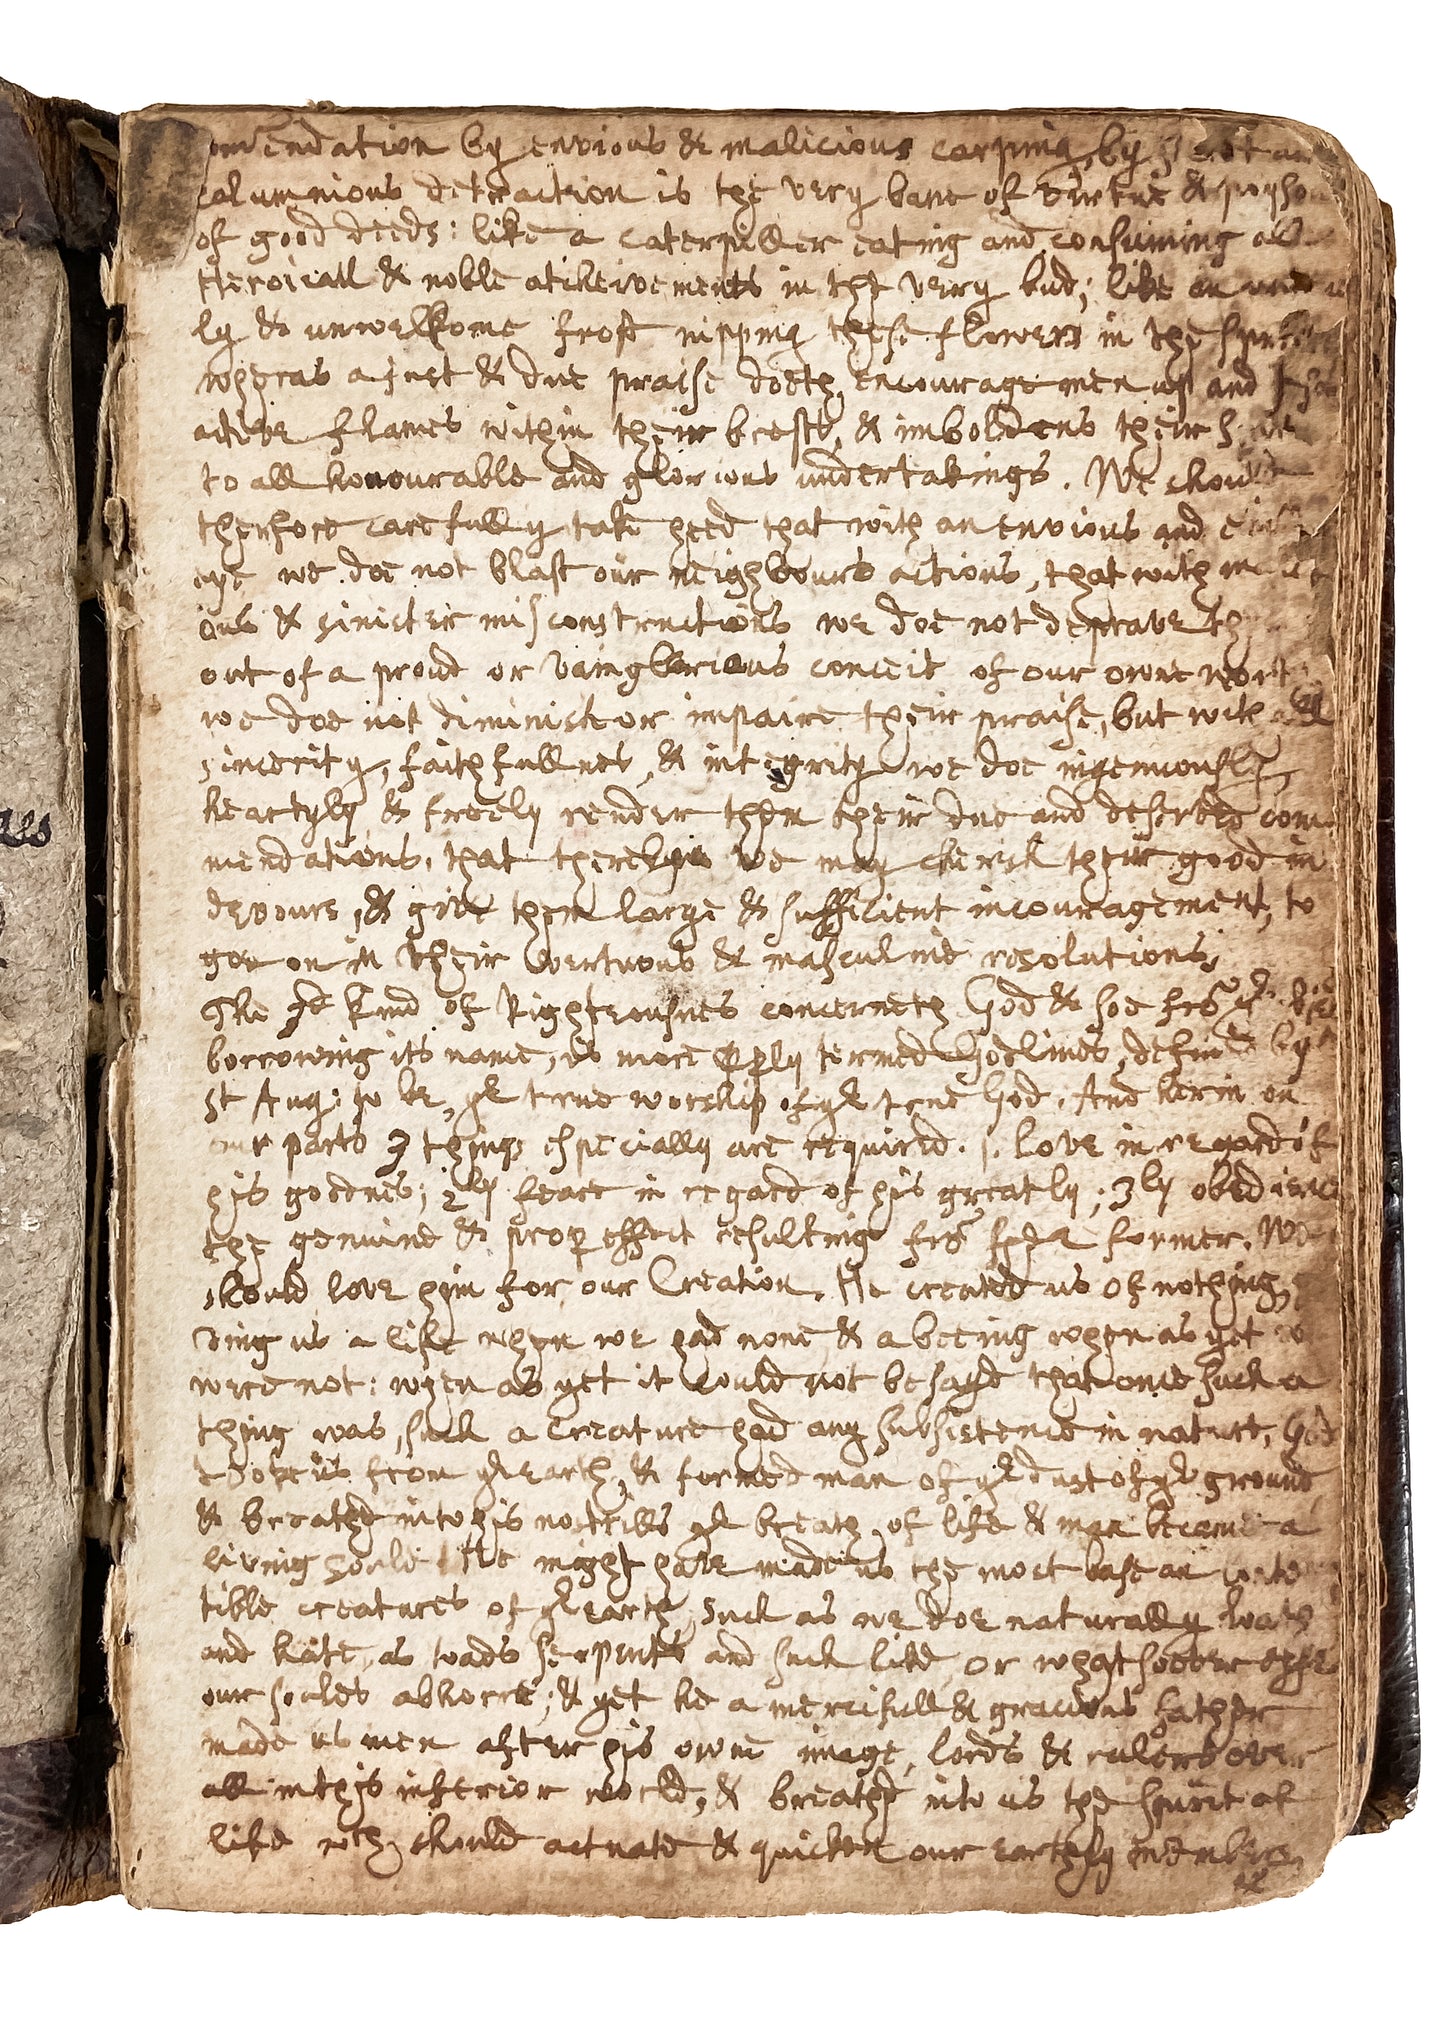 omendation by envious & malicious carping, by
calumnious detraction is the very bane of virtue & poyson
of good deeds: like a caterpiller eating and consuming all
Heroicall & noble atcheivements in the very bud; like an
ly & unwelkome frost nipping these flowers in the
wheras a just & due praise doeth encourage men up and
active flames within their brests, & imboldens their
to all honourable and glorious undertakings. We should
therfore carefully take heed that with an envious and
eye we doe not blast our neighbours actions, that with
ous & sinister misconstructions we doe not deprave
out of a proud or vainglorious conceit of our owne
we doe not diminish or impaire their praise, but with all
sincerity, faithfullnes, & integrity we doe ingenuously,
heartyly & freely render them their due and deserved com
mendations, that therebye we may cherish their good in
devours, & give them large & sufficient incouragement, to
goe on in their vertuous & masculine resolutions;
The kind of Righteousnes concerneth God & soe frō
borrowing its name, is more pply termed Godlines, defined by
St Aug: to be, ye true worship of ye true God. And herin on
our parts 3 things especially are required. 1. love in regard of
his goodnes; 2ly feare in regard of his greatly; 3ly obedience
the genuine & prop effect resulting frō former. We
should love him for our Creation. He created us of nothing,
ving us a life when we had none & a beeing when as yet we
were not: when as yet it could not be sayd that one such a
thing was, such a creature had any subsistence in nature. God
us from ye earth, & formed man of ye dust of ye ground,
& breathed into his nostrills ye breath of life & man became a
living soule. He might have made us the most base an
tible creatures of ye earth, such as we doe naturally loath
and hate, as toads serpents and such like or whatsoever
our soules abhorre; & yet he a mercifull & gracious father
made us men after his owne image, lords & rulers over
all in this inferior world, & breathd into us the spirit of
life wch should actuate & quicken our earthly members,